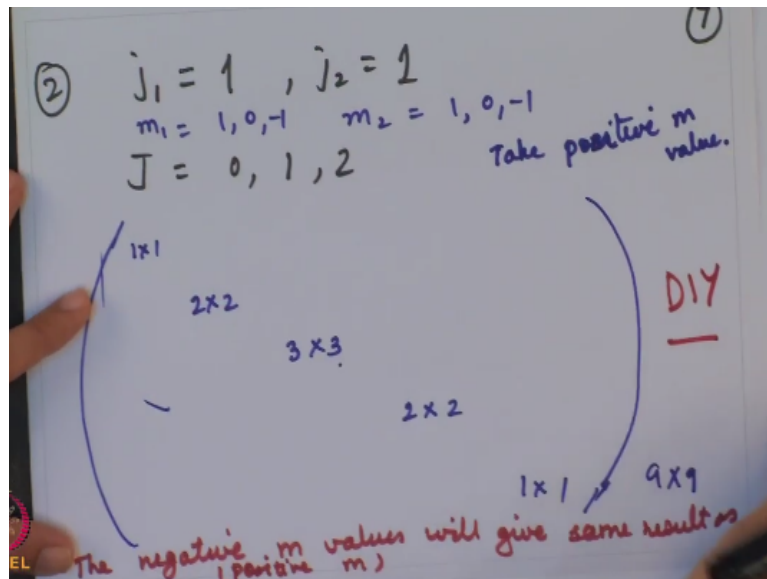 7
② j₁ = 1 , j₂ = 1
m₁ = 1, 0, -1 m₂ = 1, 0, -1
Take positive m value.
J = 0, 1, 2
1×1
2×2
3×3
2×2
1×1
9×9
DIY
The negative m values will give same result as
(positive m)
EL